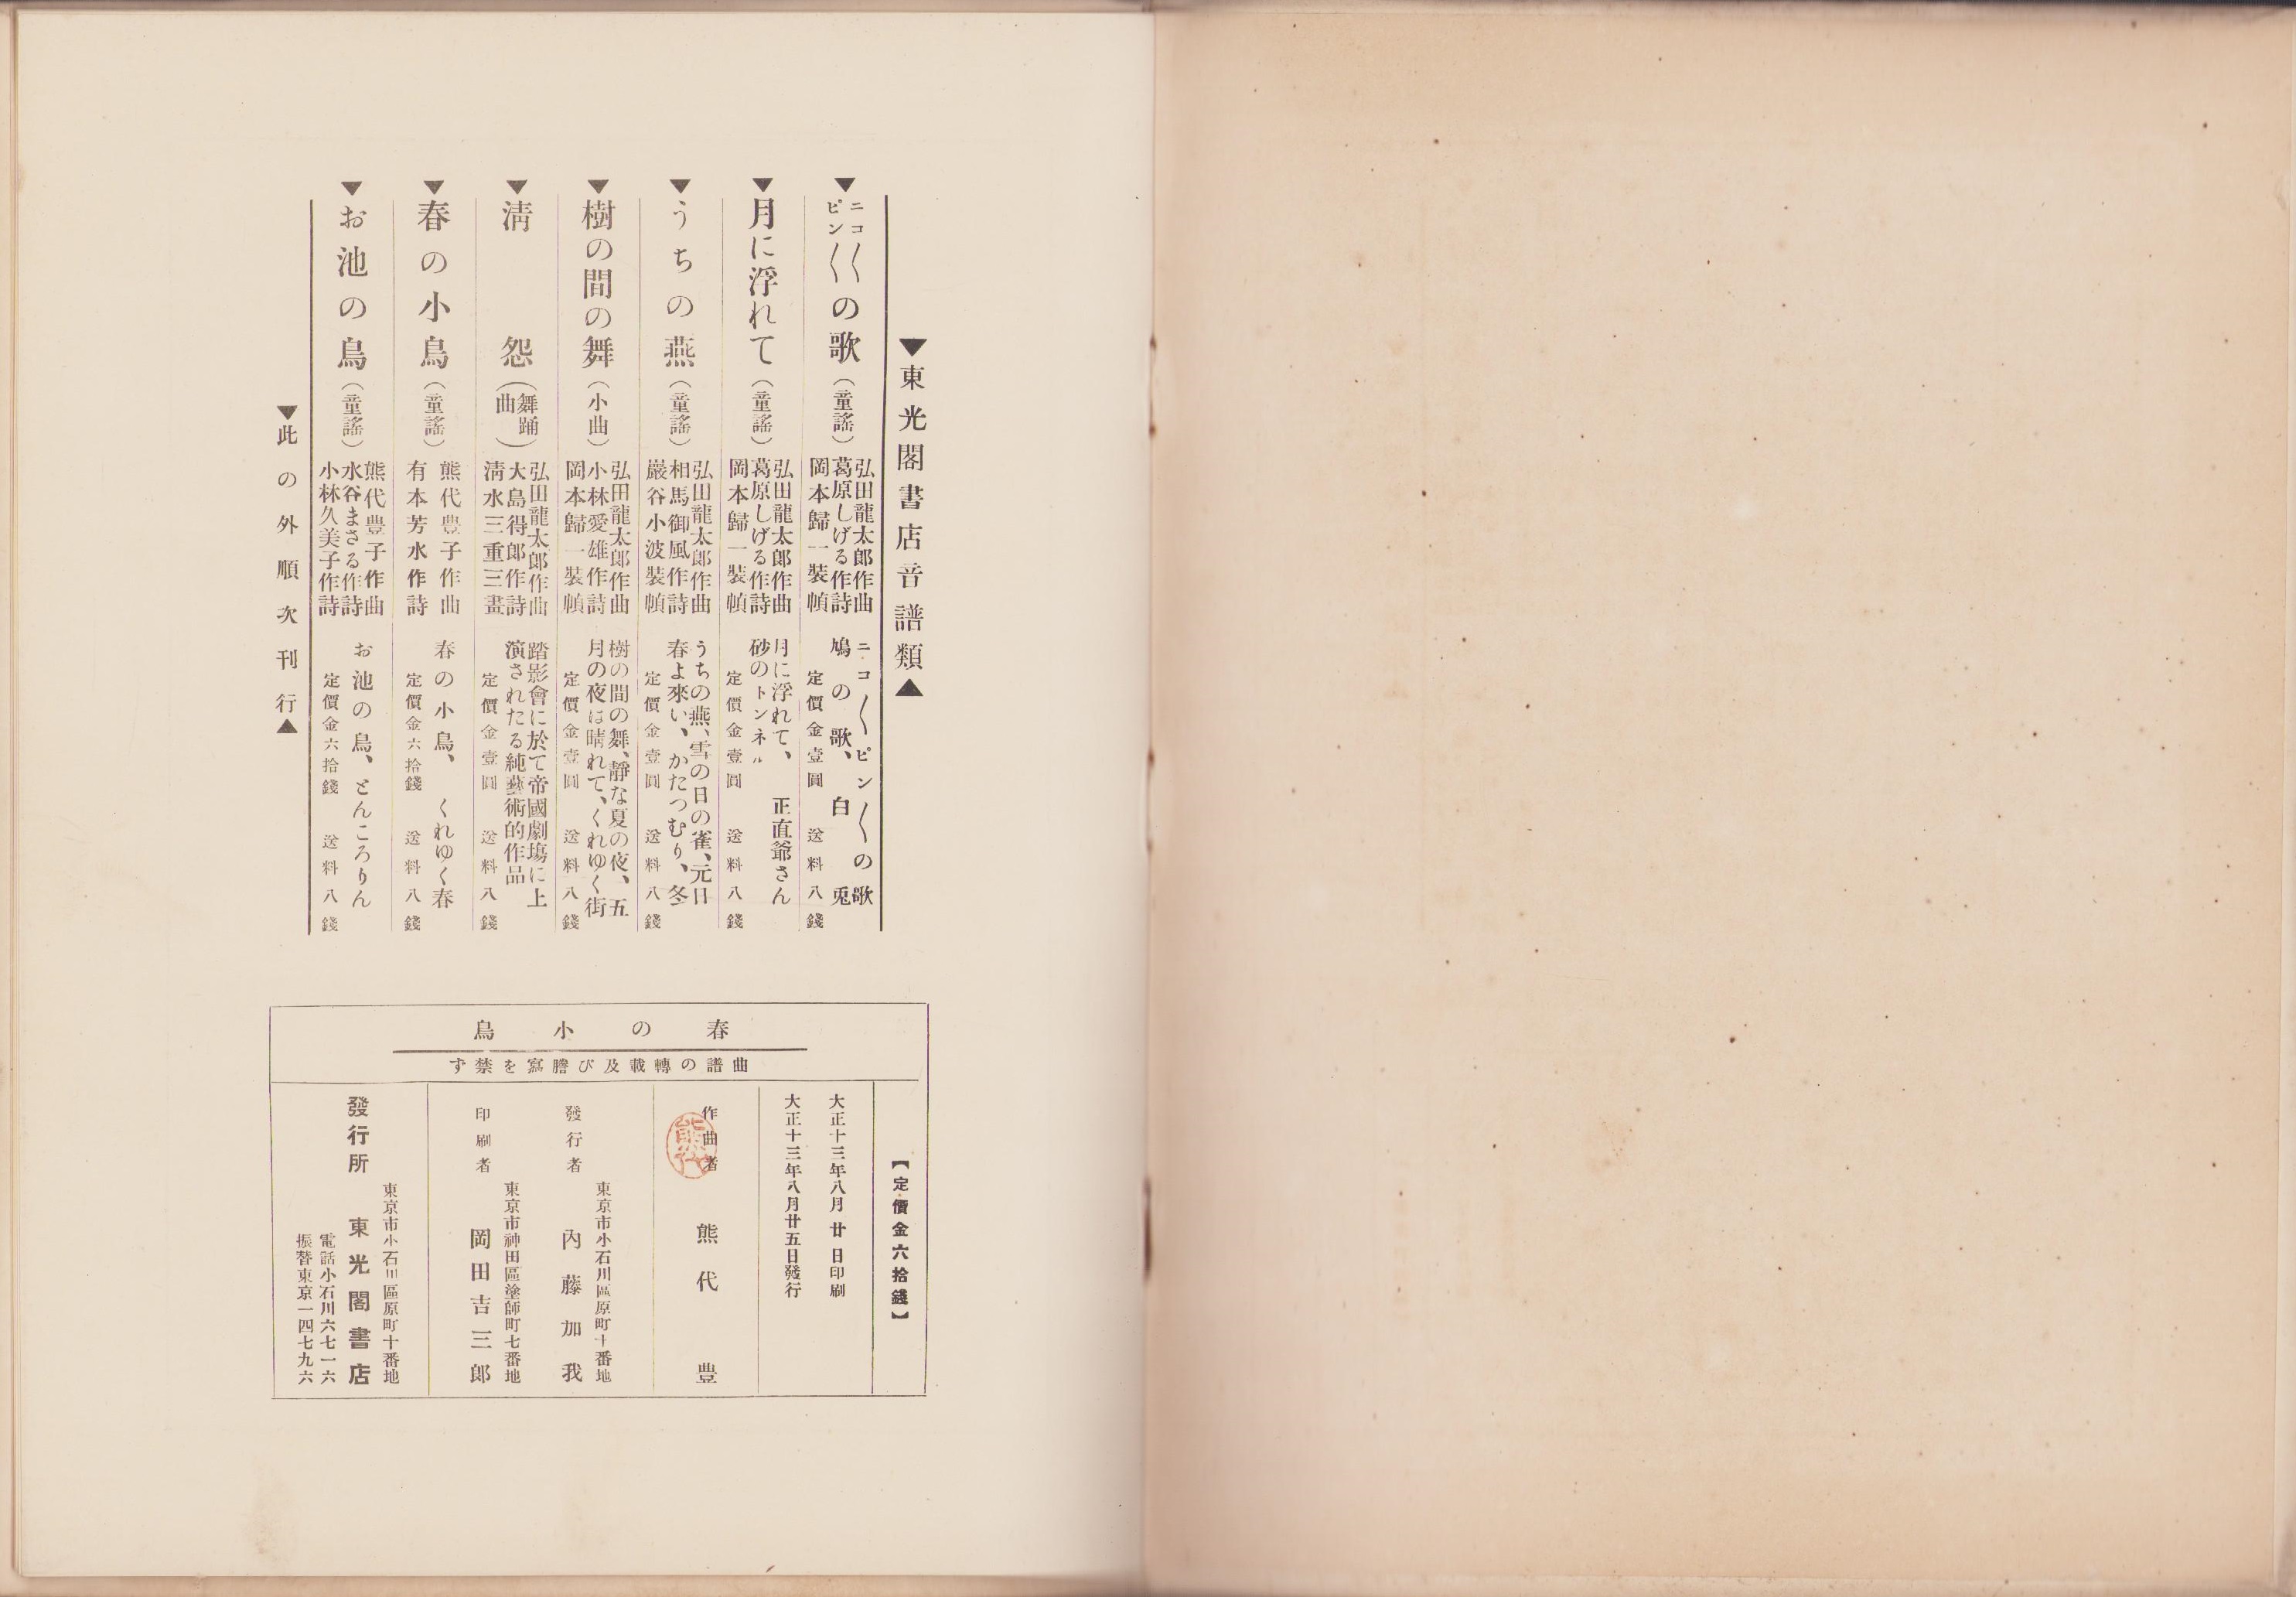 ▼東光閣書店音譜類▲
▼ニコ〱ピン〱の歌（童謠）
弘田龍太郎作曲
葛原しげる作詩
岡本歸一裝幀
ニコ〱ピン〱の歌
鳩の歌、白兎
定價金壹圓　送料八錢
▼月に浮れて（童謠）
弘田龍太郎作曲
葛原しげる作詩
岡本歸一裝幀
月に浮れて、正直爺さん
砂のトンネル
定價金壹圓　送料八錢
▼うちの燕（童謠）
弘田龍太郎作曲
相馬御風作詩
巖谷小波裝幀
うちの燕、雪の日の雀、元日
春よ來い、かたつむり、冬
定價金壹圓　送料八錢
▼樹の間の舞（小曲）
弘田龍太郎作曲
小林愛雄作詩
岡本歸一裝幀
樹の間の舞、靜な夏の夜、五
月の夜は晴れて、くれゆく街
定價金壹圓　送料八錢
▼淸怨（舞踊曲）
弘田龍太郎作曲
大島得郎作詩
淸水三重三畫
踏影會に於て帝國劇塲に上
演されたる純藝術的作品
定價金壹圓　送料八錢
▼春の小鳥（童謠）
熊代豊子作曲
有本芳水作詩
春の小鳥、くれゆく春
定價金六拾錢　送料八錢
▼お池の鳥（童謠）
熊代豊子作曲
水谷まさる作詩
小林久美子作詩
お池の鳥、とんころりん
定價金六拾錢　送料八錢
▼此の外順次刊行▲
春の小鳥
曲譜の轉載及び謄寫を禁ず
【定價金六拾錢】
大正十三年八月廿日印刷
大正十三年八月廿五日發行
作曲者　熊代豊
熊代
東京市小石川區原町十番地
發行者　內藤加我
東京市神田區塗師町七番地
印刷者　岡田吉三郎
東京市小石川區原町十番地
發行所　東光閣書店
電話小石川六七一六
振替東京一四七九六